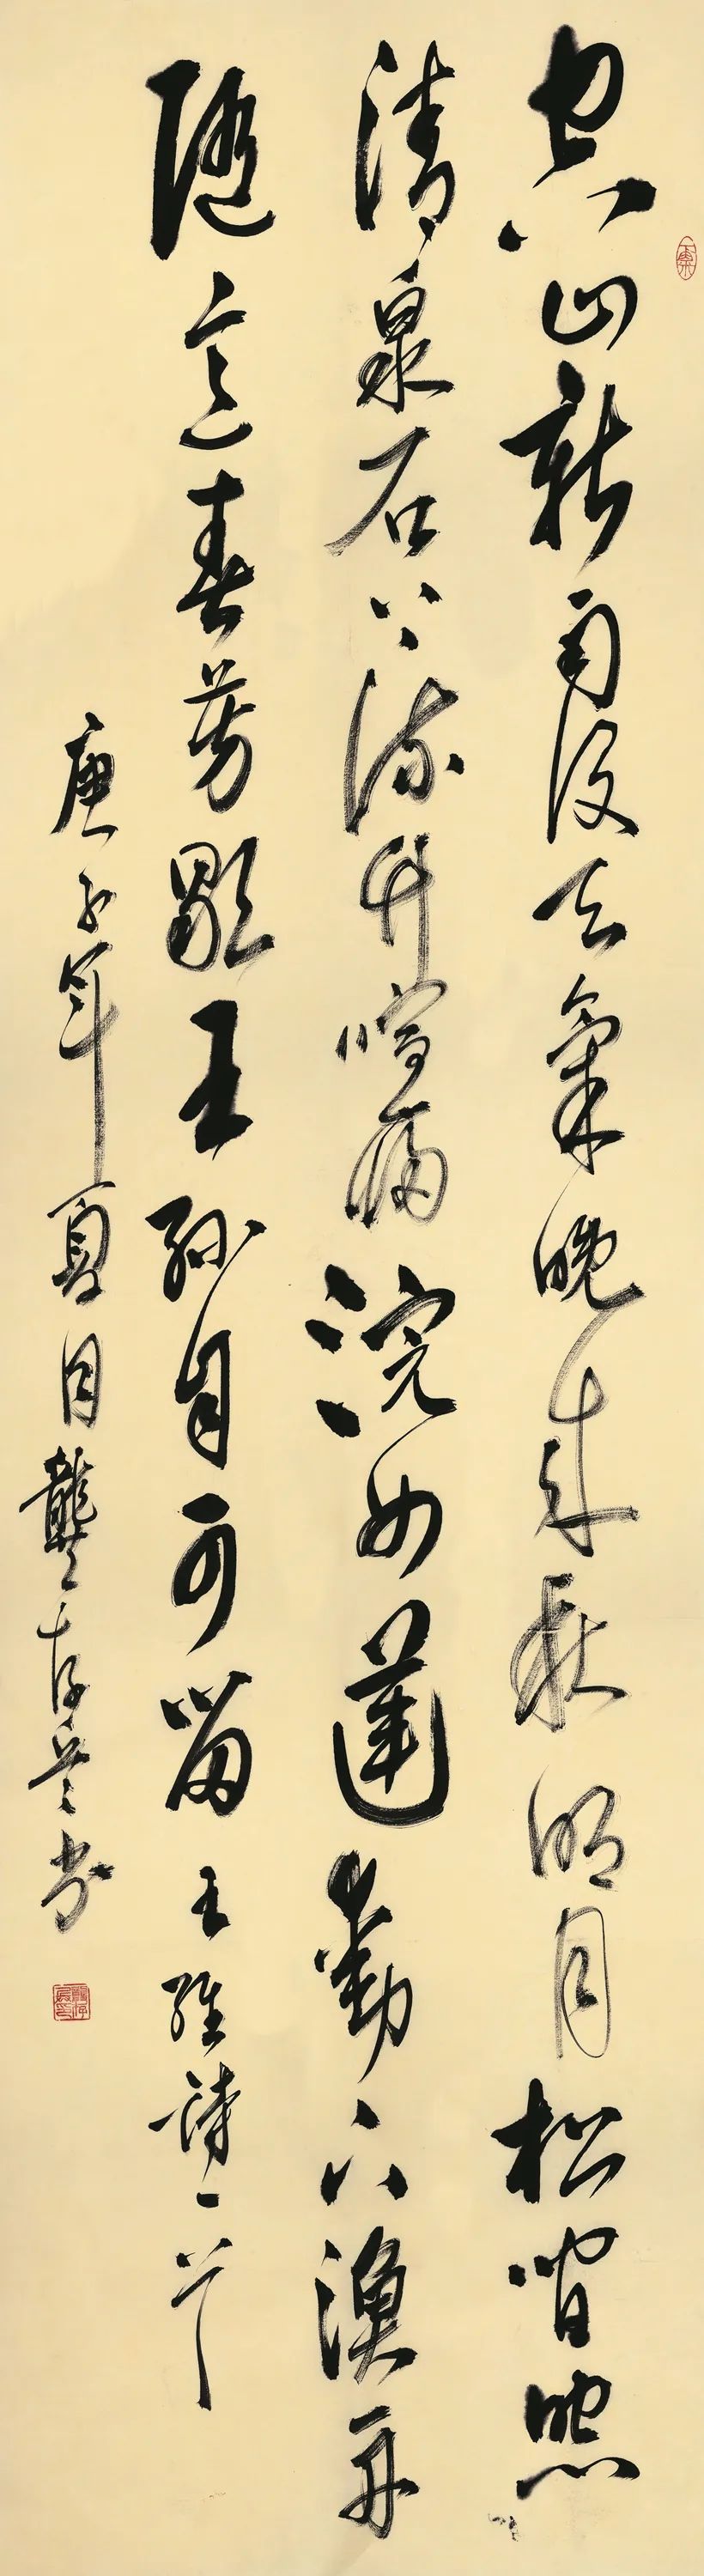 空山新雨後天氣晚來秋明月松間照
清泉石上流竹喧歸浣女蓮動下漁舟
隨意春芳歇王孫自可留王維詩一首
庚子年夏月龔存書